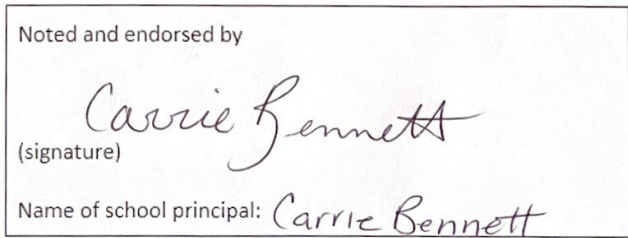 Noted and endorsed by
Carrie Bennett
(signature)
Name of school principal: Carrie Bennett